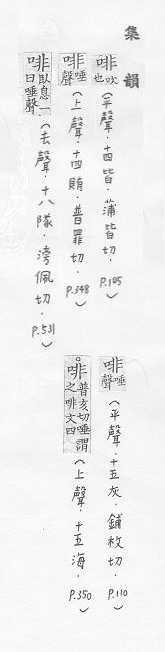 集韻
啡吹也(平聲.十四皆.蒲皆切.P.105)
啡唾聲(平聲.十五灰.鋪枚切.P.110)
啡唾聲(上聲.十四賄.普罪切.P.348)
。啡普亥切唾謂之啡文四(上聲.十五海.P.350)
啡臥息一曰唾聲(去聲.十八隊.滂佩切.P.531)